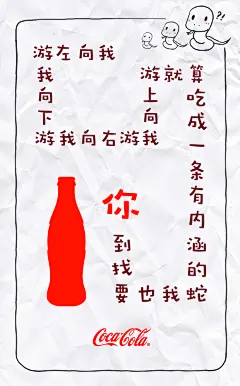 ?!
我向左游
我向下游
我向右游
我向上游
就算吃成一条有内涵的蛇
我也要找到你
Coca-Cola